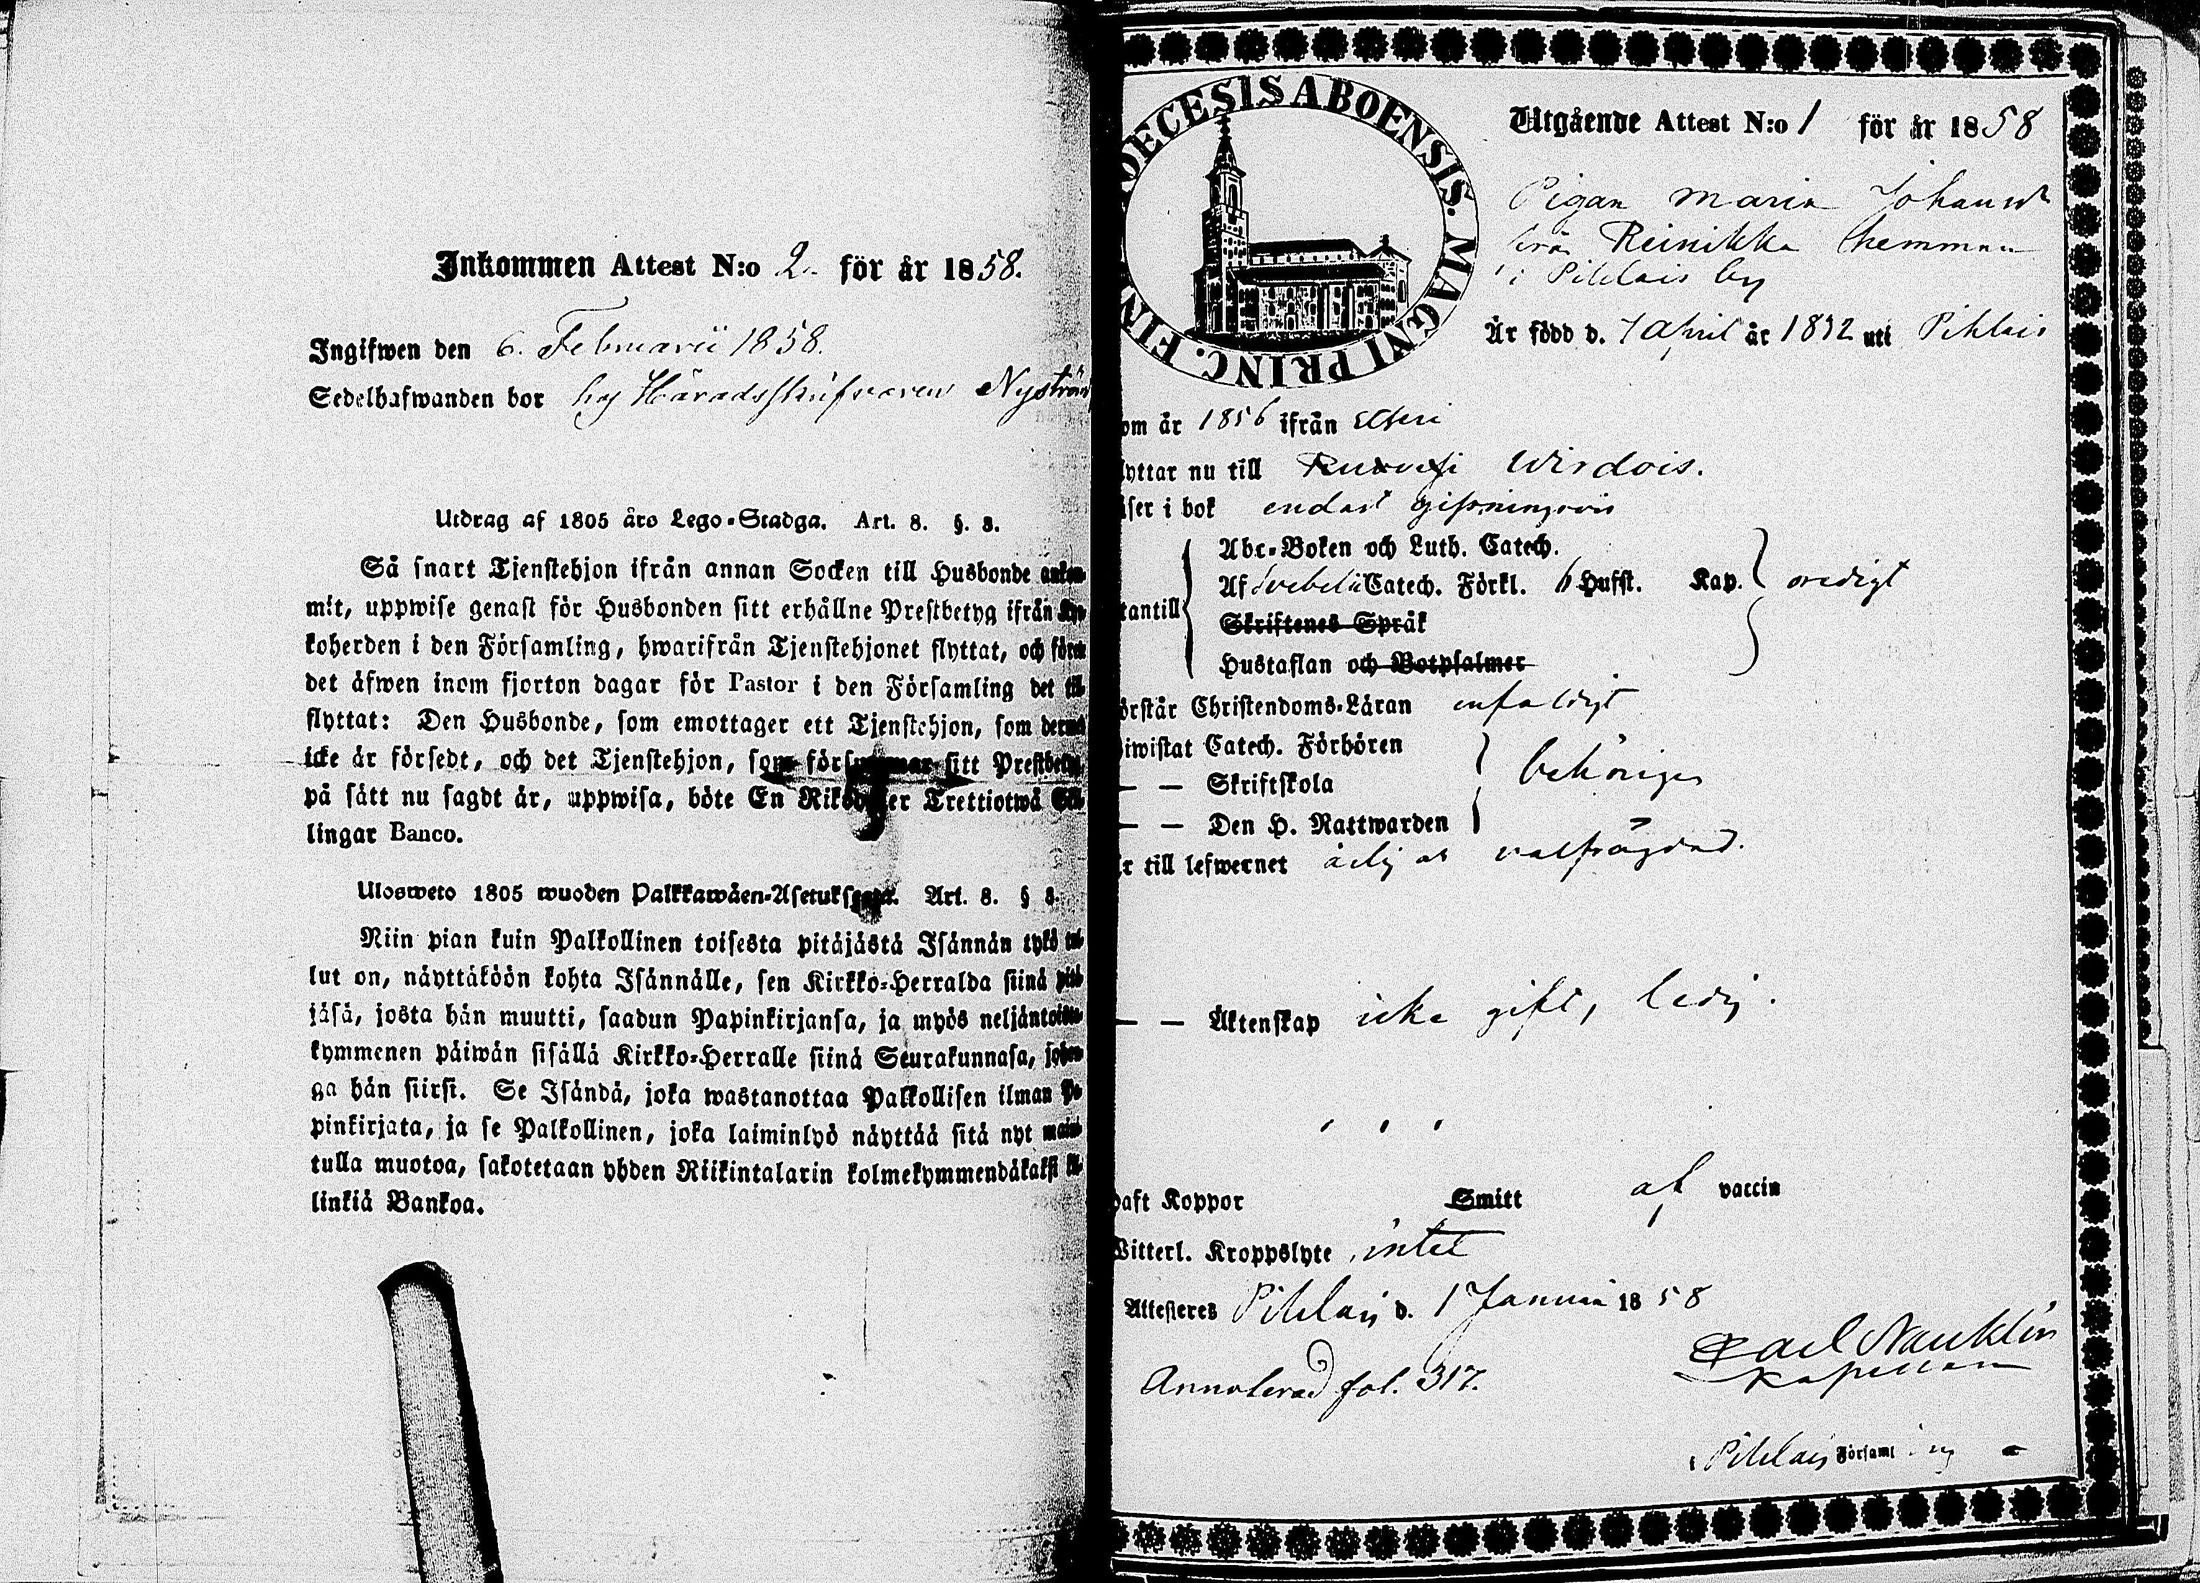 Inkommen Attest N:o 2. för år 1858.
Ingifwen den 6. Februarii 1858.
Sedelhafwanden bor hos Häradsskrifvaren Nyström
Utdrag af 1805 års Lego-Stadga. Art. 8. §. 8.
Så snart Tjenstehjon ifrån annan Socken till Husbonde
mit, uppwise genast för Husbonden sitt erhållne Prestbetyg ifrån
koherden i den Församling, hwarifrån Tjenstehjonet flyttat, och
det äfwen inom fjorton dagar för Pastor i den Församling det
flyttat: Den Husbonde, som emottager ett Tjenstehjon, som
icke är försedt, och det Tjenstehjon, som försummar sitt Prestbetyg
på sätt nu sagdt är, uppwisa, böte En Riksdaler Trettiotwå
lingar Banco.
Ulosweto 1805 wuoden Palkkawäen-Asetuksesta. Art. 8. § 8.
Niin pian kuin Palkollinen toisesta pitäjästä Isännän tykö
lut on, näyttäköön kohta Isännälle, sen Kirkko-Herralda siinä
jäsä, josta hän muutti, saadun Papinkirjansa, ja myös neljäntoista
kymmenen päiwän sisällä Kirkko-Herralle siinä Seurakunnasa,
ga hän siirsi. Se Isändä, joka wastanottaa Palkollisen ilman
pinkirjata, ja se Palkollinen, joka laiminlyö näyttää sitä nyt
tulla muotoa, sakotetaan yhden Riikintalarin kolmekymmendäkaksi
linkiä Bankoa.
DECESIS ABOENSIS. MAGNI PRINC. FIN
Utgående Attest N:o 1 för år 1858
Pigan Maria
från Reinikka hemman
i Pihlais by
Är född d. 7 April år 1832 uti Pihlais
om år 1856 ifrån Etseri
yttar nu till Ruovesi Wirdois.
äser i bok endast gissningsvis
Abc-Boken och Luth. Catech.
Af Svebelii Catech. Förkl. 6 Hufst. Kap. oredigt
tantill
Skriftenes Språk
Hustaflan och Botpsalmer
örstår Christendoms-Läran enfaldigt
iwistat Catech. Förhören
— — Skriftskola behörigen
— — Den H. Nattwarden
r till lefwernet ärlig och välfrägdad.
— — Äktenskap icke gift, ledig.
haft Koppor Smitt af vaccin
Witterl. Kroppslyte intet
Attesteres Pihlais d. 1 Januari 1858
Carl Nauklér
Kapellan
Annoterad fol. 317.
i Pihlais Församling